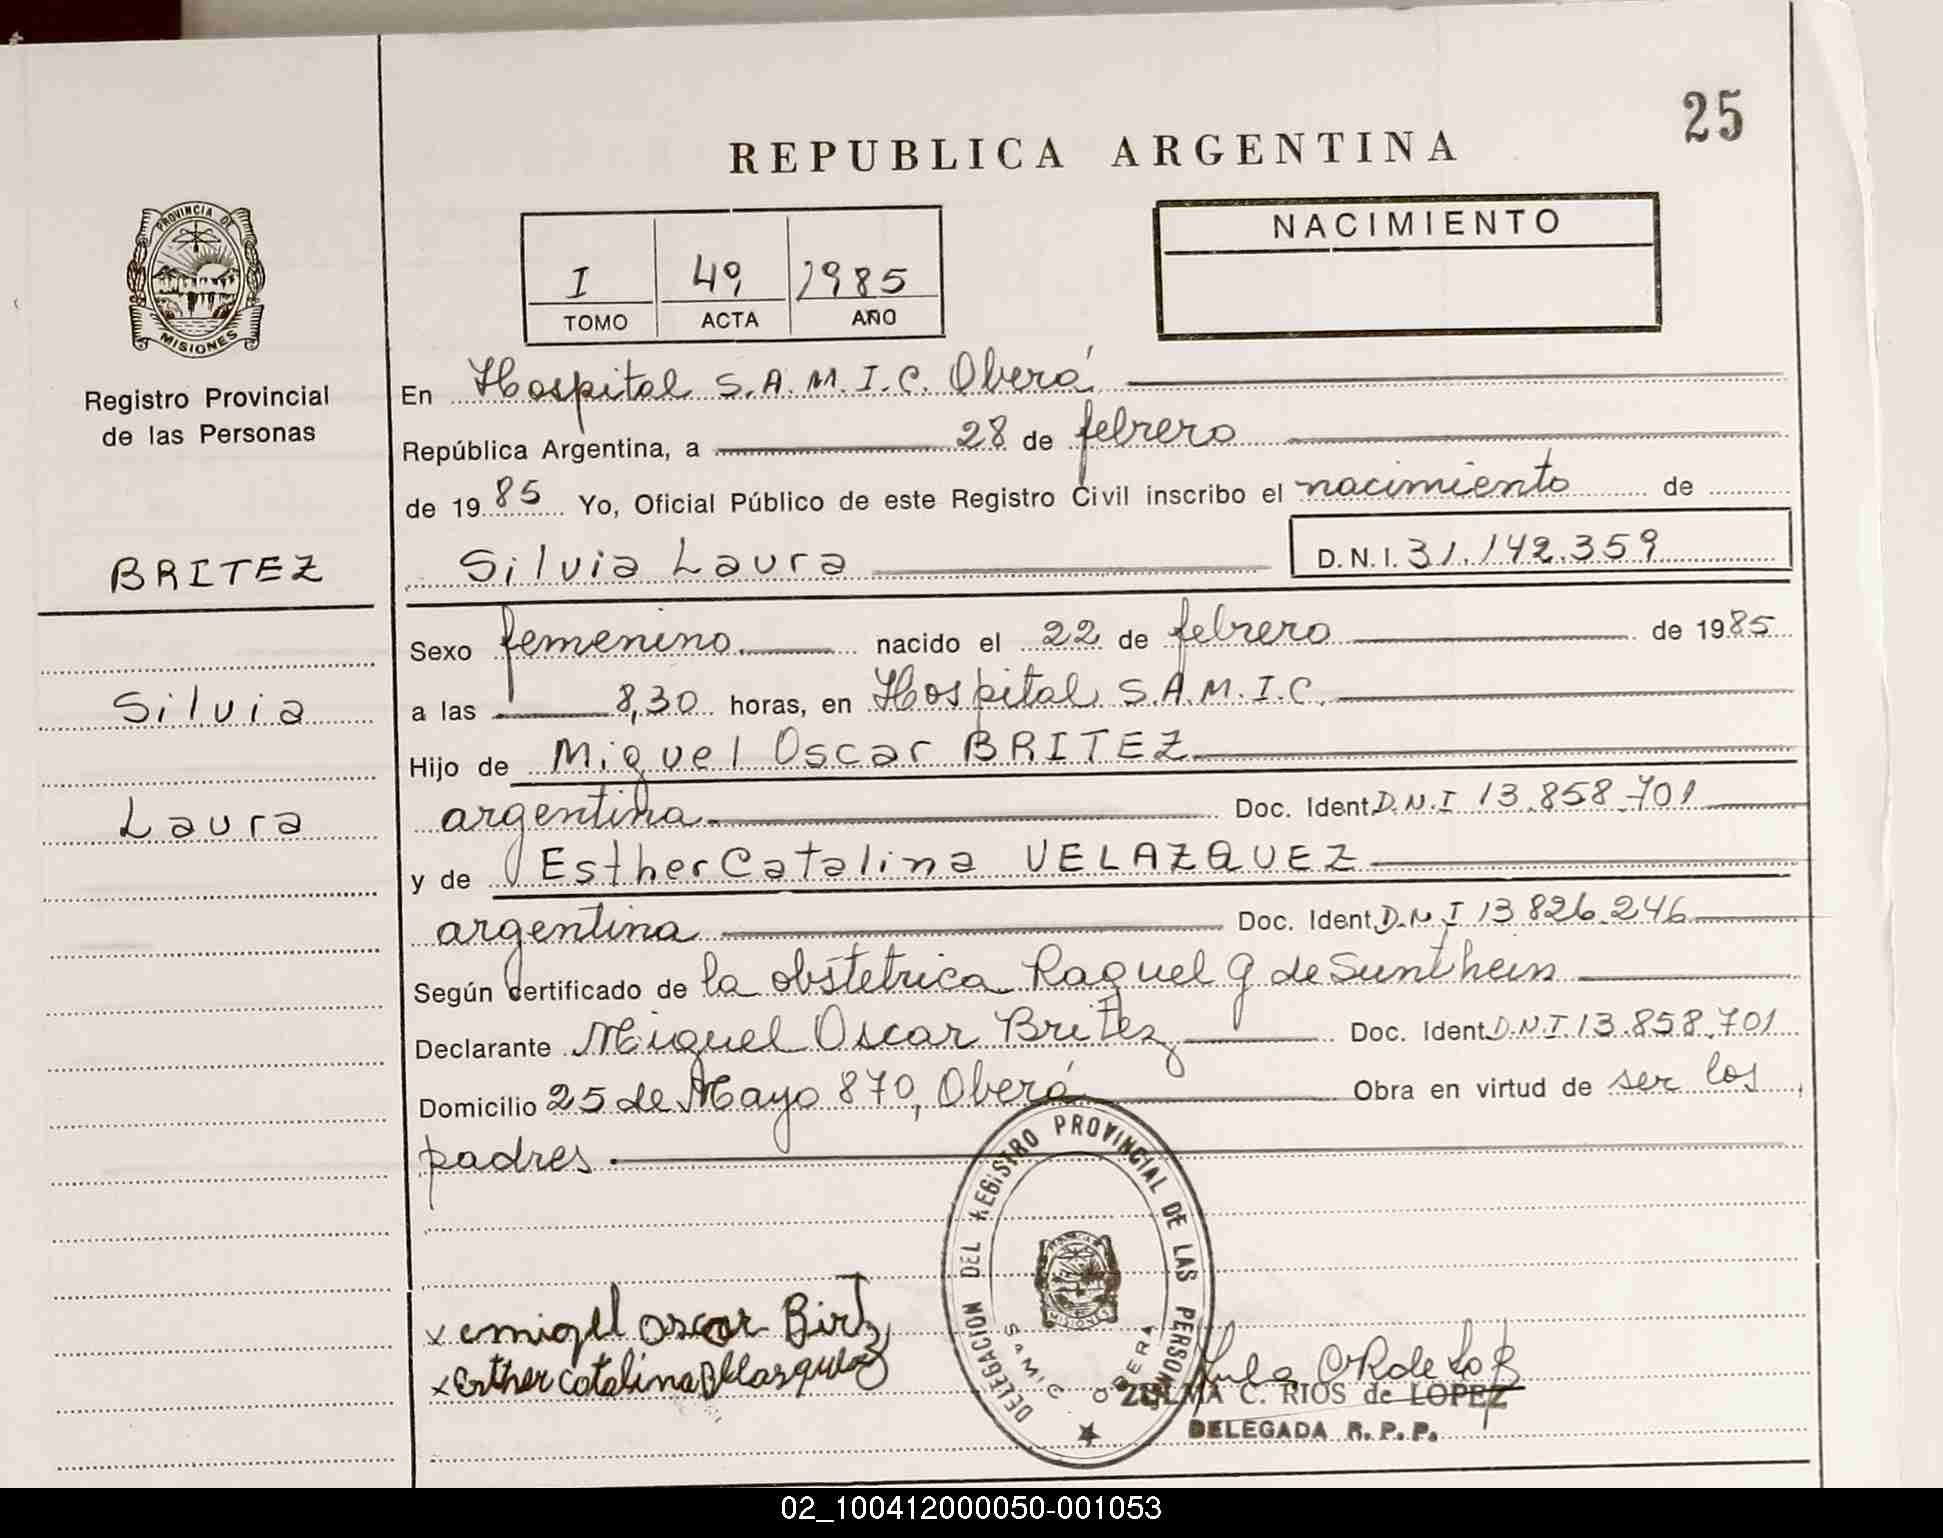 25
REPUBLICA ARGENTINA
PROVINCIA DE
MISIONES
Registro Provincial
de las Personas
BRITEZ
Silvia
Laura
I 49 1985
TOMO ACTA AÑO
NACIMIENTO
En Hospital S.A.M.I.C. Oberá
República Argentina, a 28 de febrero
de 1985 Yo, Oficial Público de este Registro Civil inscribo el nacimiento de
Silvia Laura D.N.I. 31.142.359
Sexo femenino nacido el 22 de febrero de 1985
a las 8,30 horas, en Hospital S.A.M.I.C.
Hijo de Miguel Oscar BRITEZ
argentina Doc. Ident D.N.I 13.858.701
y de Esther Catalina VELAZQUEZ
argentina Doc. Ident D.N.I 13.826.246
Según certificado de la obstetrica Raquel G de Sunthein
Declarante Miguel Oscar Britez Doc. Ident D.N.I. 13.858.701
Domicilio 25 de Mayo 870, Oberá Obra en virtud de ser los
padres.
DELEGACION DEL REGISTRO PROVINCIAL DE LAS PERSONAS
SAMIC OBERA
MISIONES
x Oscar
x Esther Catalina
ZULMA C. RIOS de LOPEZ
DELEGADA R.P.P.
02_100412000050-001053